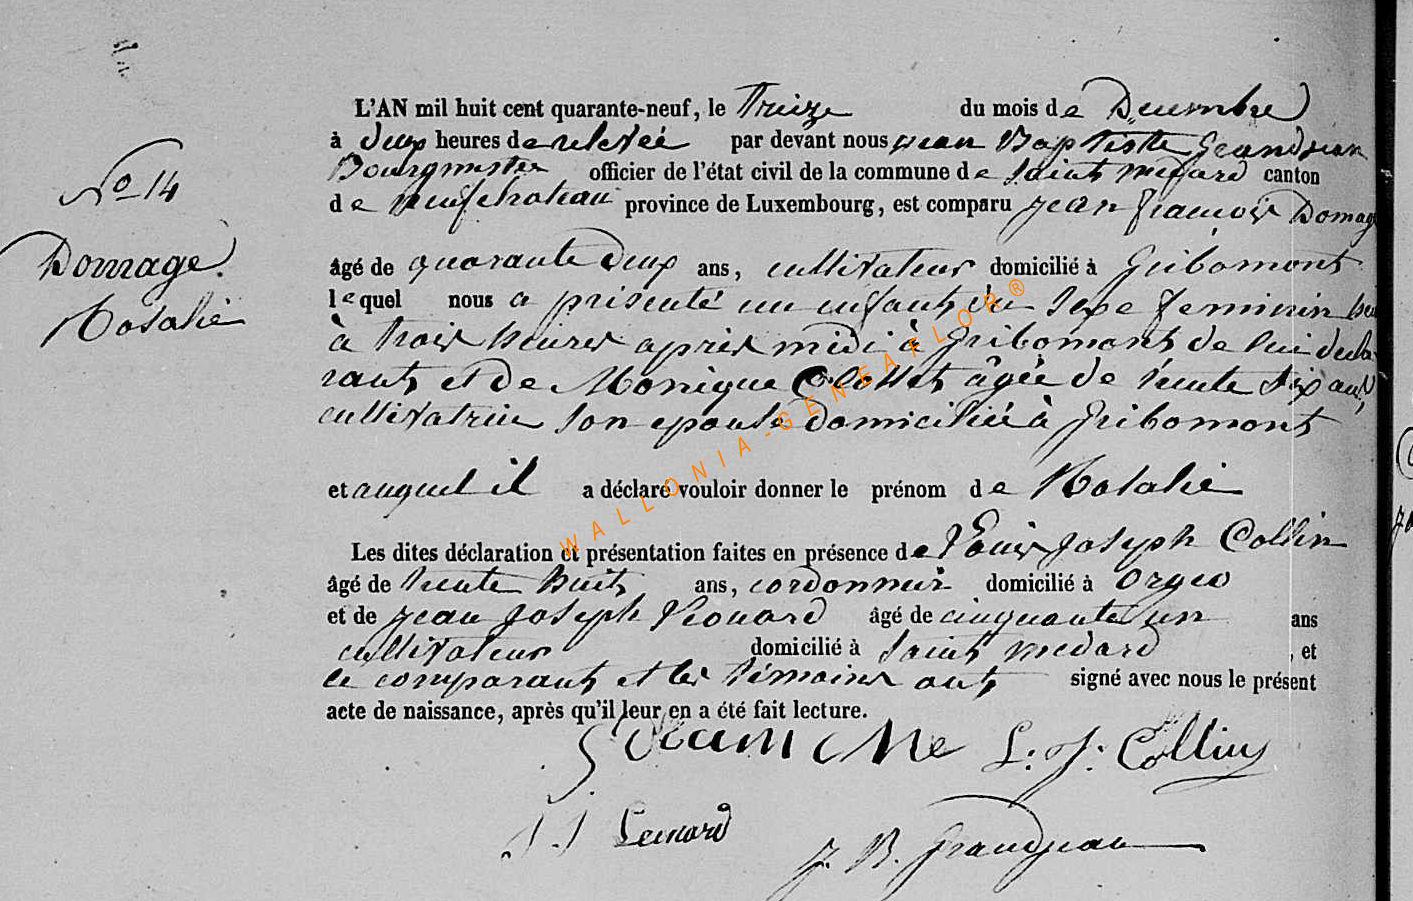 L'AN mil huit cent quarante-neuf, le Treize du mois de Decembre
à deux heures de relevée par devant nous jean Baptiste Grandjean
Bourgmestre officier de l'état civil de la commune de saint médard canton
No 14
de neufchateau province de Luxembourg, est comparu jean françois Domage
Domage
Rosalie
âgé de quarante deux ans, cultivateur domicilié à Gribomont
lequel nous a présenté un enfant du sexe feminin
à trois heures après midi à Gribomont de lui décla
rant et de Monique Collet âgée de trente six ans,
cultivatrice son épouse domiciliée à Gribomont
et auquel il a déclaré vouloir donner le prénom de Rosalie
Les dites déclaration et présentation faites en présence de Louis joseph Collin
âgé de trente huit ans, cordonnier domicilié à Orgeo
et de jean joseph Léonard âgé de cinquante un ans
cultivateur domicilié à saint medard, et
le comparant et les témoins ont signé avec nous le présent
acte de naissance, après qu'il leur en a été fait lecture.
L: J: Collin
J J Leonard
J. B. Grandjean
WALLONIA-GENEAFLOR®